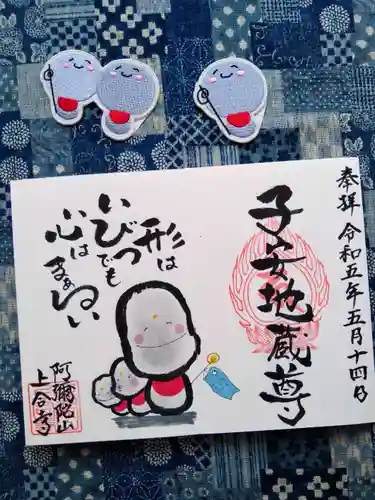 奉拝 令和五年五月十四日
子安地蔵尊
形は
いびつでも
心は
まあるい
阿彌陀山
上合寺